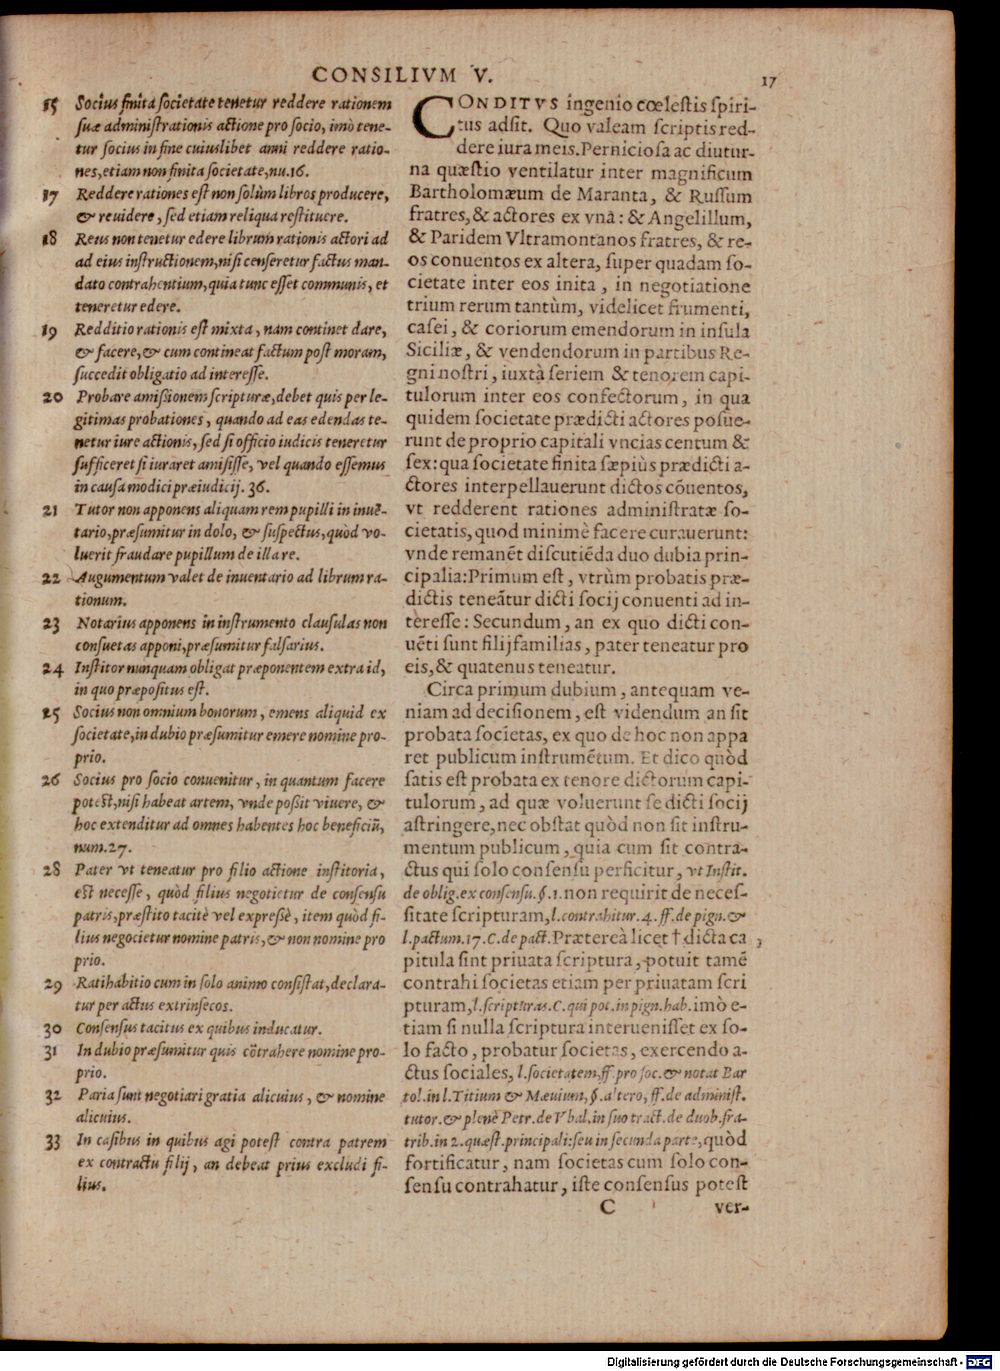 CONSILIVM V.
17
15 Socius finita societate tenetur reddere rationem
suæ administrationis actione pro socio, imò tene-
tur socius in fine cuiuslibet anni reddere ratio-
nes, etiam non finita societate, nu. 16.
17 Reddere rationes est non solùm libros producere,
& reuidere, sed etiam reliqua restituere.
18 Reus non tenetur edere librum rationis actori ad
ad eius instructionem, nisi censeretur factus man-
dato contrahentium, quia tunc esset communis, et
teneretur edere.
19 Redditio rationis est mixta, nam continet dare,
& facere, & cum contineat factum post moram,
succedit obligatio ad interesse.
20 Probare amißionem scripturæ, debet quis per le-
gitimas probationes, quando ad eas edendas te-
netur iure actionis, sed si officio iudicis teneretur
sufficeret si iuraret amisisse, vel quando essemus
in causa modici præiudicij. 36.
21 Tutor non apponens aliquam rem pupilli in inuē-
tario, præsumitur in dolo, & suspectus, quòd vo-
luerit fraudare pupillum de illa re.
22 Augumentum valet de inuentario ad librum ra-
tionum.
23 Notarius apponens in instrumento clausulas non
consuetas apponi, præsumitur falsarius.
24 Institor nunquam obligat præponentem extra id,
in quo præpositus est.
25 Socius non omnium bonorum, emens aliquid ex
societate, in dubio præsumitur emere nomine pro-
prio.
26 Socius pro socio conuenitur, in quantum facere
potest, nisi habeat artem, vnde poßit viuere, &
hoc extenditur ad omnes habentes hoc beneficiū,
num. 27.
28 Pater vt teneatur pro filio actione institoria,
est necesse, quòd filius negotietur de consensu
patris, præstito tacitè vel expreßè, item quòd fi-
lius negocietur nomine patris, & non nomine pro
prio.
29 Ratihabitio cum in solo animo consistat, declara-
tur per actus extrinsecos.
30 Consensus tacitus ex quibus inducatur.
31 In dubio præsumitur quis cōtrahere nomine pro-
prio.
32 Paria sunt negotiari gratia alicuius, & nomine
alicuius.
33 In casibus in quibus agi potest contra patrem
ex contractu filij, an debeat prius excludi fi-
lius.
CONDITVS ingenio cœlestis spiri-
tus adsit. Quo valeam scriptis red-
dere iura meis. Perniciosa ac diutur-
na quæstio ventilatur inter magnificum
Bartholomæum de Maranta, & Russum
fratres, & actores ex vnâ: & Angelillum,
& Paridem Vltramontanos fratres, & re-
os conuentos ex altera, super quadam so-
cietate inter eos inita, in negotiatione
trium rerum tantùm, videlicet frumenti,
casei, & coriorum emendorum in insula
Siciliæ, & vendendorum in partibus Re-
gni nostri, iuxtà seriem & tenorem capi-
tulorum inter eos confectorum, in qua
quidem societate prædicti actores posue-
runt de proprio capitali vncias centum &
sex: qua societate finita sæpiùs prædicti a-
ctores interpellauerunt dictos cōuentos,
vt redderent rationes administratæ so-
cietatis, quod minimè facere curauerunt:
vnde remanēt discutiēda duo dubia prin-
cipalia: Primum est, vtrùm probatis præ-
dictis teneātur dicti socij conuenti ad in-
teresse: Secundum, an ex quo dicti con-
uēti sunt filijfamilias, pater teneatur pro
eis, & quatenus teneatur.
Circa primum dubium, antequam ve-
niam ad decisionem, est videndum an sit
probata societas, ex quo de hoc non appa
ret publicum instrumētum. Et dico quòd
satis est probata ex tenore dictorum capi-
tulorum, ad quæ voluerunt se dicti socij
astringere, nec obstat quòd non sit instru-
mentum publicum, quia cum sit contra-
ctus qui solo consensu perficitur, vt Instit.
de oblig. ex consensu. §. 1. non requirit de neces-
sitate scripturam, l. contrahitur. 4. ff. de pign. &
l. pactum. 17. C. de pact. Prætereà licet † dicta ca 3
pitula sint priuata scriptura, potuit tamē
contrahi societas etiam per priuatam scri
pturam, l. scripturas. C. qui pot. in pign. hab. imò e-
tiam si nulla scriptura interuenisset ex so-
lo facto, probatur societas, exercendo a-
ctus sociales, l. societatem, ff. pro soc. & notat Bar
tol. in l. Titium & Mæuium, §. altero, ff. de administ.
tutor. & plenè Petr. de Vbal. in suo tract. de duob. fra-
trib. in 2. quæst. principali: seu in secunda parte, quòd
fortificatur, nam societas cum solo con-
sensu contrahatur, iste consensus potest
C ver-
Digitalisierung gefördert durch die Deutsche Forschungsgemeinschaft - DFG